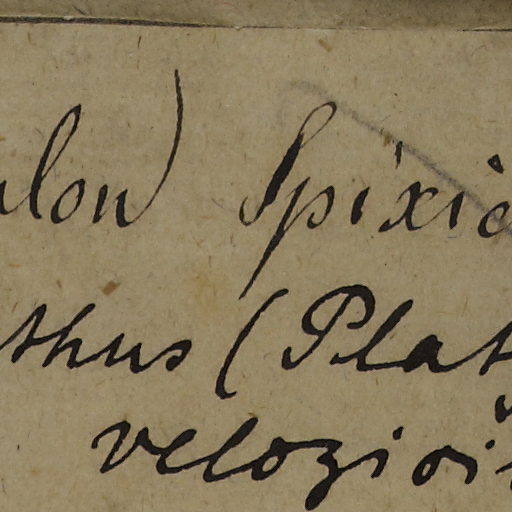 lon) Spixia
thus (Plat
velozioi